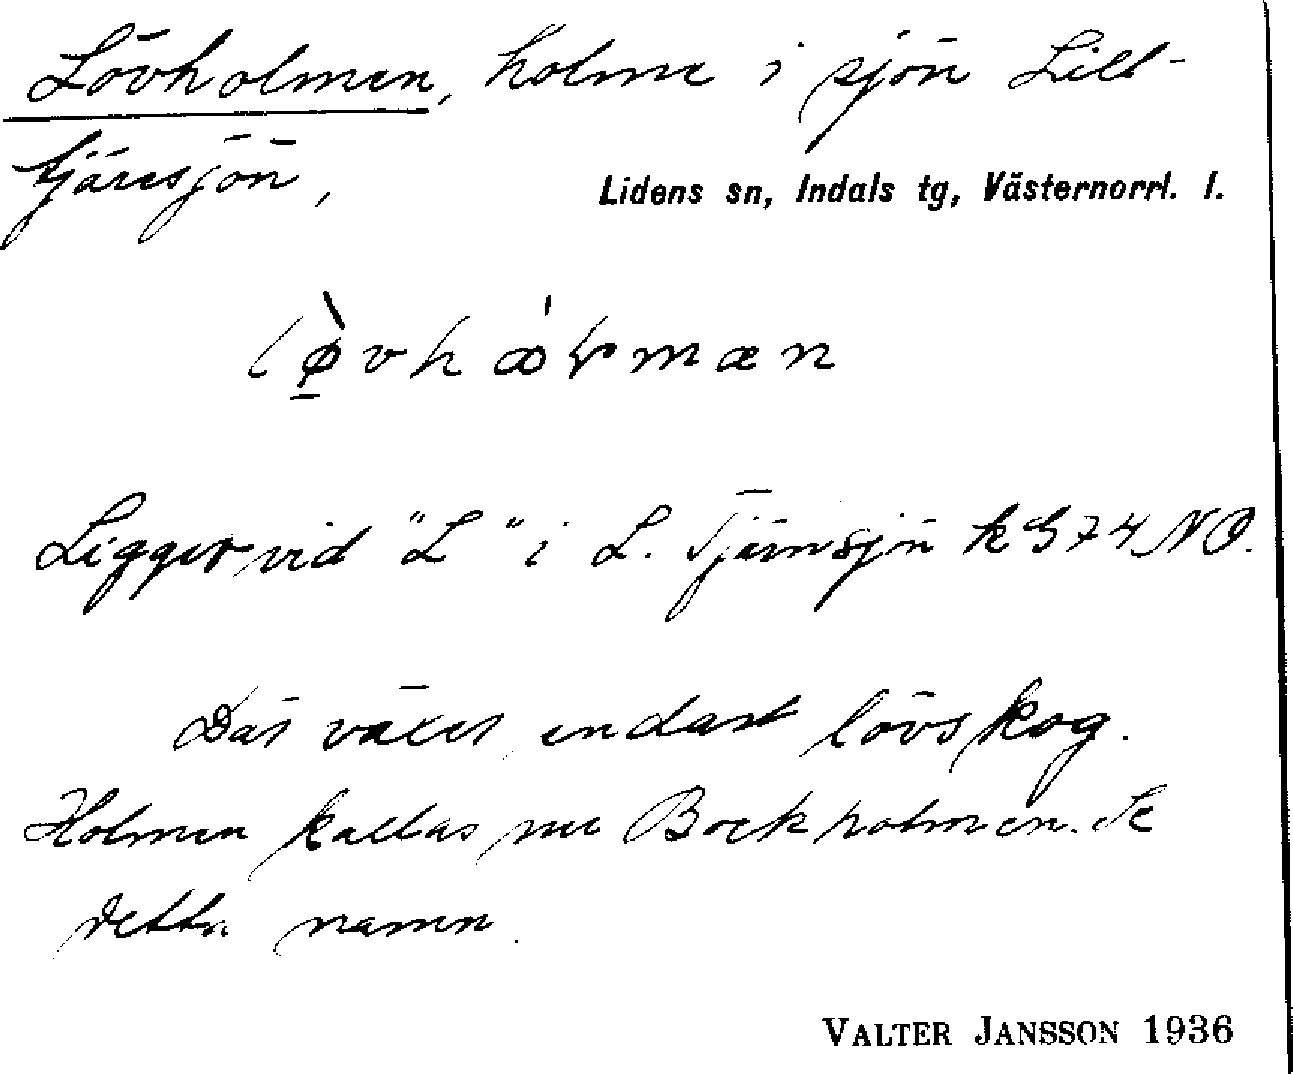 Lövholmen, holme i sjön Lill-
tjärnsjön,
Lidens sn, Indals tg, Västernorrl. l.
Ligger vid "L" i L. Tjärnsjön k 974 NO.
Där växer endast lövskog.
Holmen kallas nu Bockholmen. Se
detta namn.
VALTER JANSSON 1936